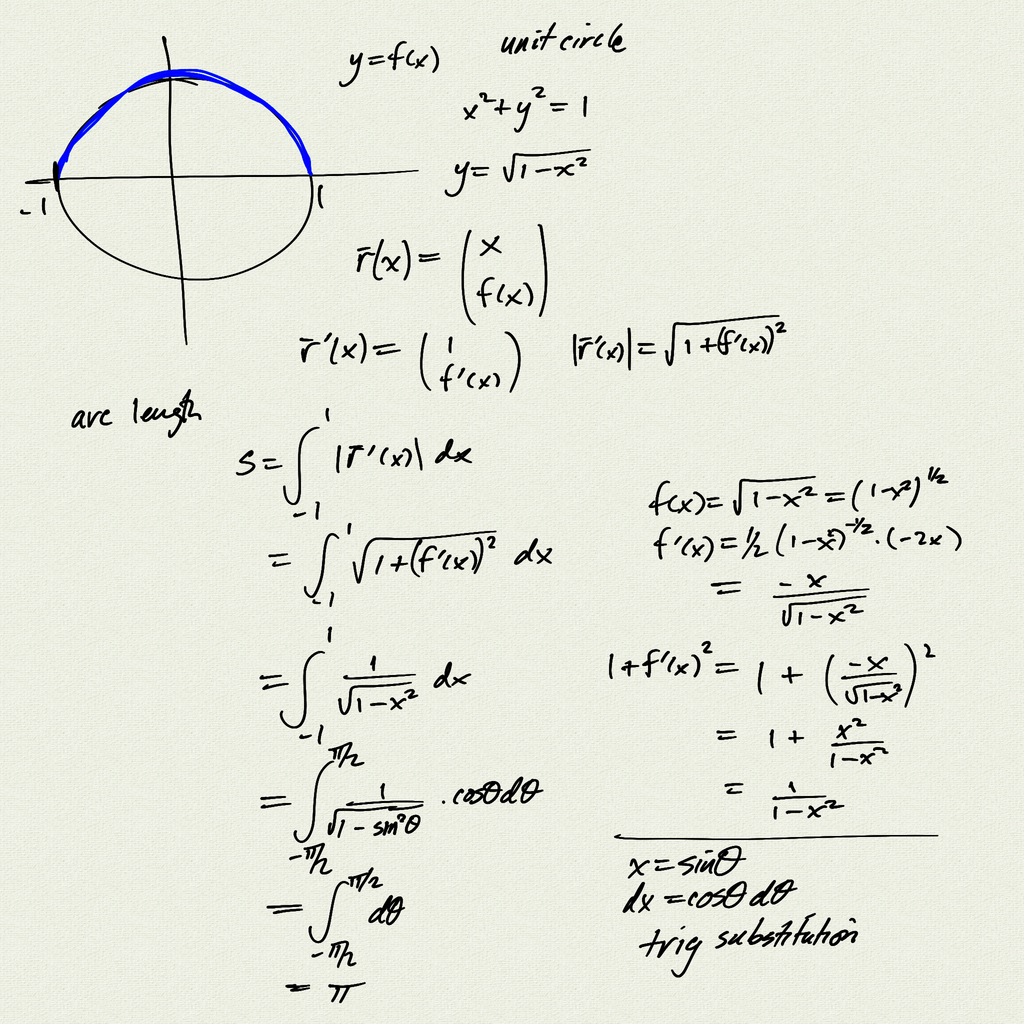 y = f(x)
unit circle
x² + y² = 1
y = √(1-x²)
-1
1
r̄(x) = (x
f(x))
r̄'(x) = (1
f'(x))
|r̄'(x)| = √(1+(f'(x))²)
arc length
s = ∫_{-1}^{1} |r̄'(x)| dx
= ∫_{-1}^{1} √(1+(f'(x))²) dx
= ∫_{-1}^{1} 1/√(1-x²) dx
= ∫_{-π/2}^{π/2} 1/√(1-sin²θ) · cosθ dθ
= ∫_{-π/2}^{π/2} dθ
= π
f(x) = √(1-x²) = (1-x²)^{1/2}
f'(x) = 1/2 (1-x²)^{-1/2} · (-2x)
= -x/√(1-x²)
1+f'(x)² = 1 + (-x/√(1-x²))²
= 1 + x²/(1-x²)
= 1/(1-x²)
x = sinθ
dx = cosθ dθ
trig substitution